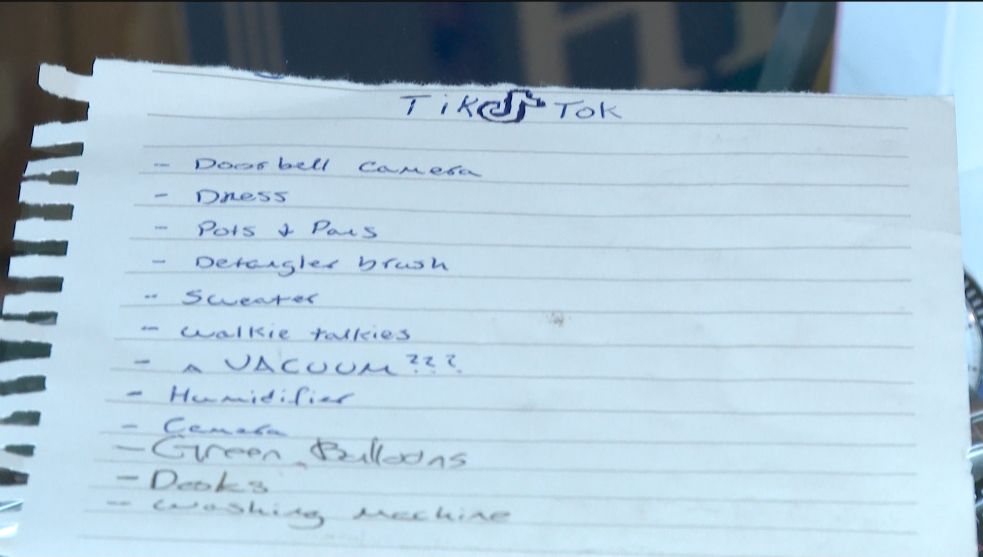 Tik Tok
- Doorbell camera
- Dress
- Pots & Pans
- Detangler brush
- Sweater
- walkie talkies
- A VACUUM???
- Humidifier
- Camera
- Green Balloons
- Dooks
- washing machine